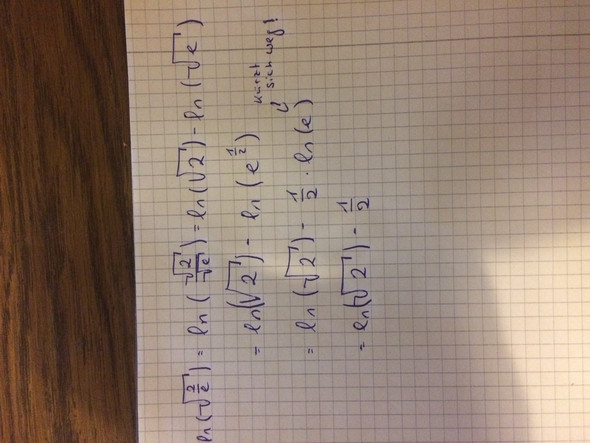 ln(√(2/e)) = ln(√2/√e) = ln(√2) - ln(√e)
= ln(√2) - ln(e^(1/2))
kürzt sich weg!
= ln(√2) - 1/2 · ln(e)
= ln(√2) - 1/2